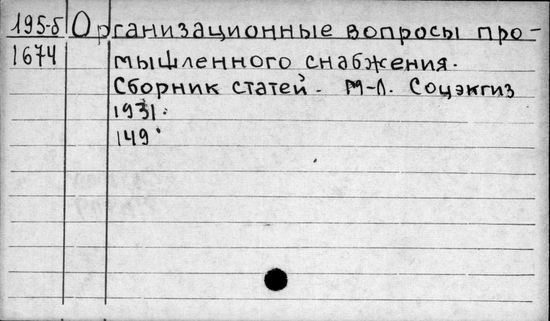 195-б Организационные вопросы про-
1674 мышленного снабжения.
Сборник статей. М-Л. Соцэкгиз
1931.
149